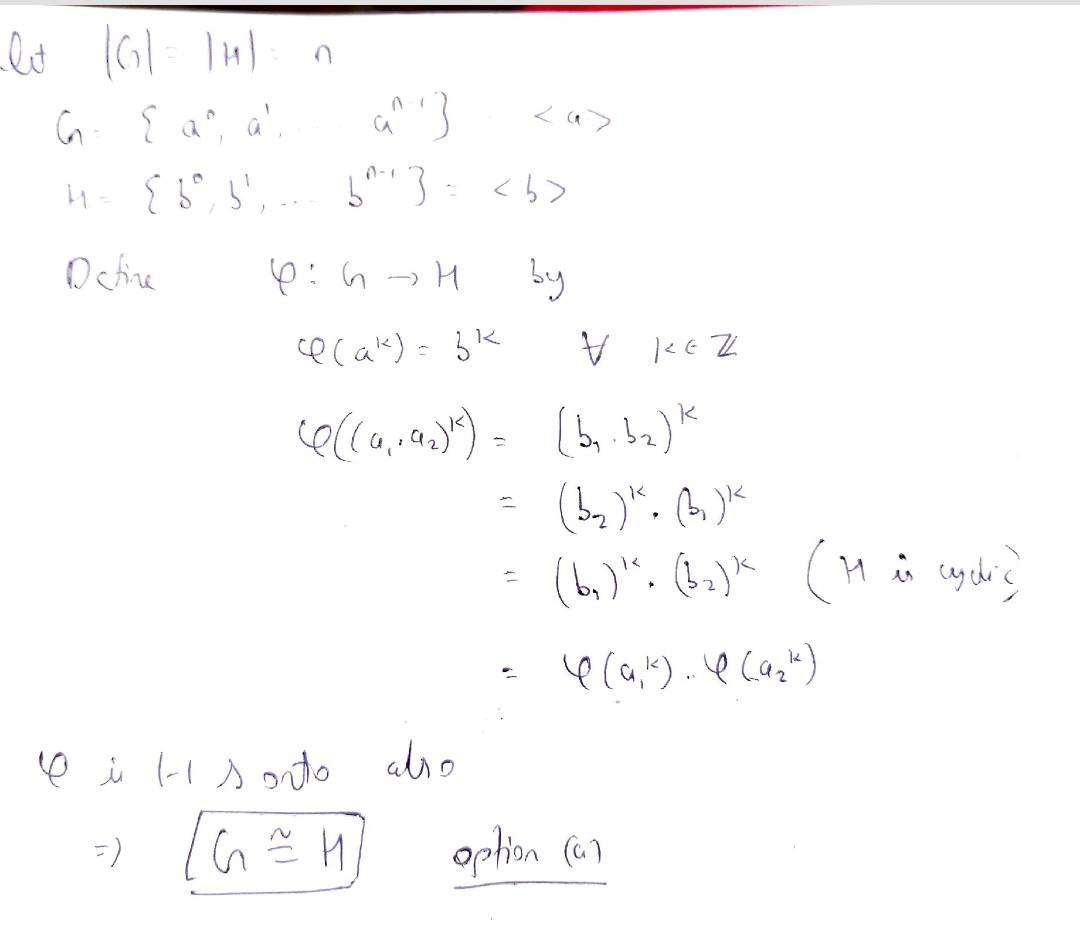 let |G| = |H| = n
G = { a⁰, a¹, ... aⁿ⁻¹ } <a>
H = { b⁰, b¹, ... bⁿ⁻¹ } = <b>
Define φ : G → H by
φ(aᵏ) = bᵏ ∀ k ∈ ℤ
φ((a₁.a₂)ᵏ) = (b₁.b₂)ᵏ
= (b₂)ᵏ . (b₁)ᵏ
= (b₁)ᵏ . (b₂)ᵏ (H is cyclic)
= φ(a₁ᵏ) . φ(a₂ᵏ)
φ is 1-1 & onto also
⇒ G ≅ H option (a)